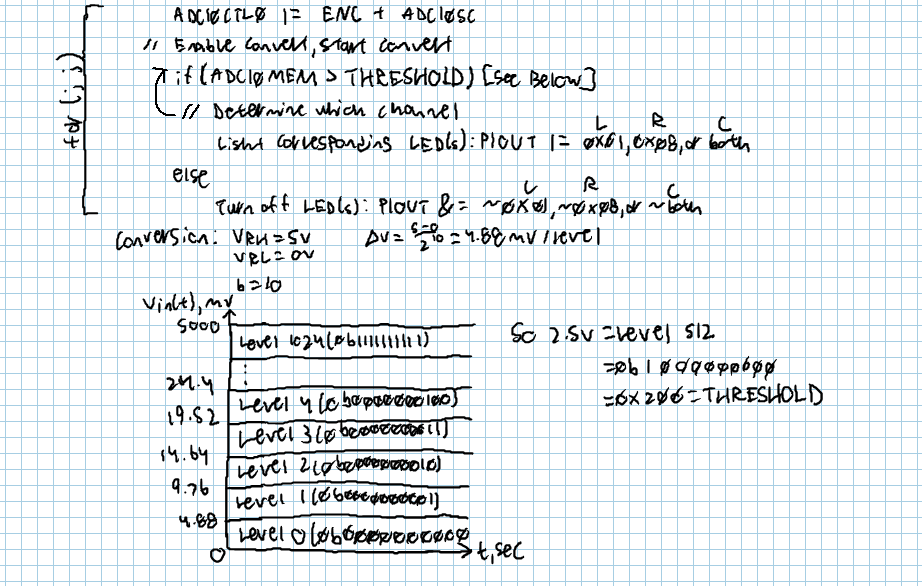 for(;;)
ADC10CTL0 |= ENC + ADC10SC
// Enable convert, start convert
if(ADC10MEM > THRESHOLD) [See Below]
// Determine which channel
L R C
Light corresponding LED(s): P1OUT |= 0x01, 0x08, or both
else
L R C
Turn off LED(s): P1OUT &= ~0x01, ~0x08, or ~both
Conversion: VRH=5V ΔV=5-0/2^10=4.88mV/level
VRL=0V
b=10
Vin(t), mV
5000
Level 1024(0b1111111111)
⋮
24.4
Level 4(0b0000000100)
19.52
Level 3(0b0000000011)
14.64
Level 2(0b0000000010)
9.76
Level 1(0b0000000001)
4.88
Level 0(0b0000000000
0
t, sec
So 2.5V =Level 512
=0b1000000000
=0x200=THRESHOLD